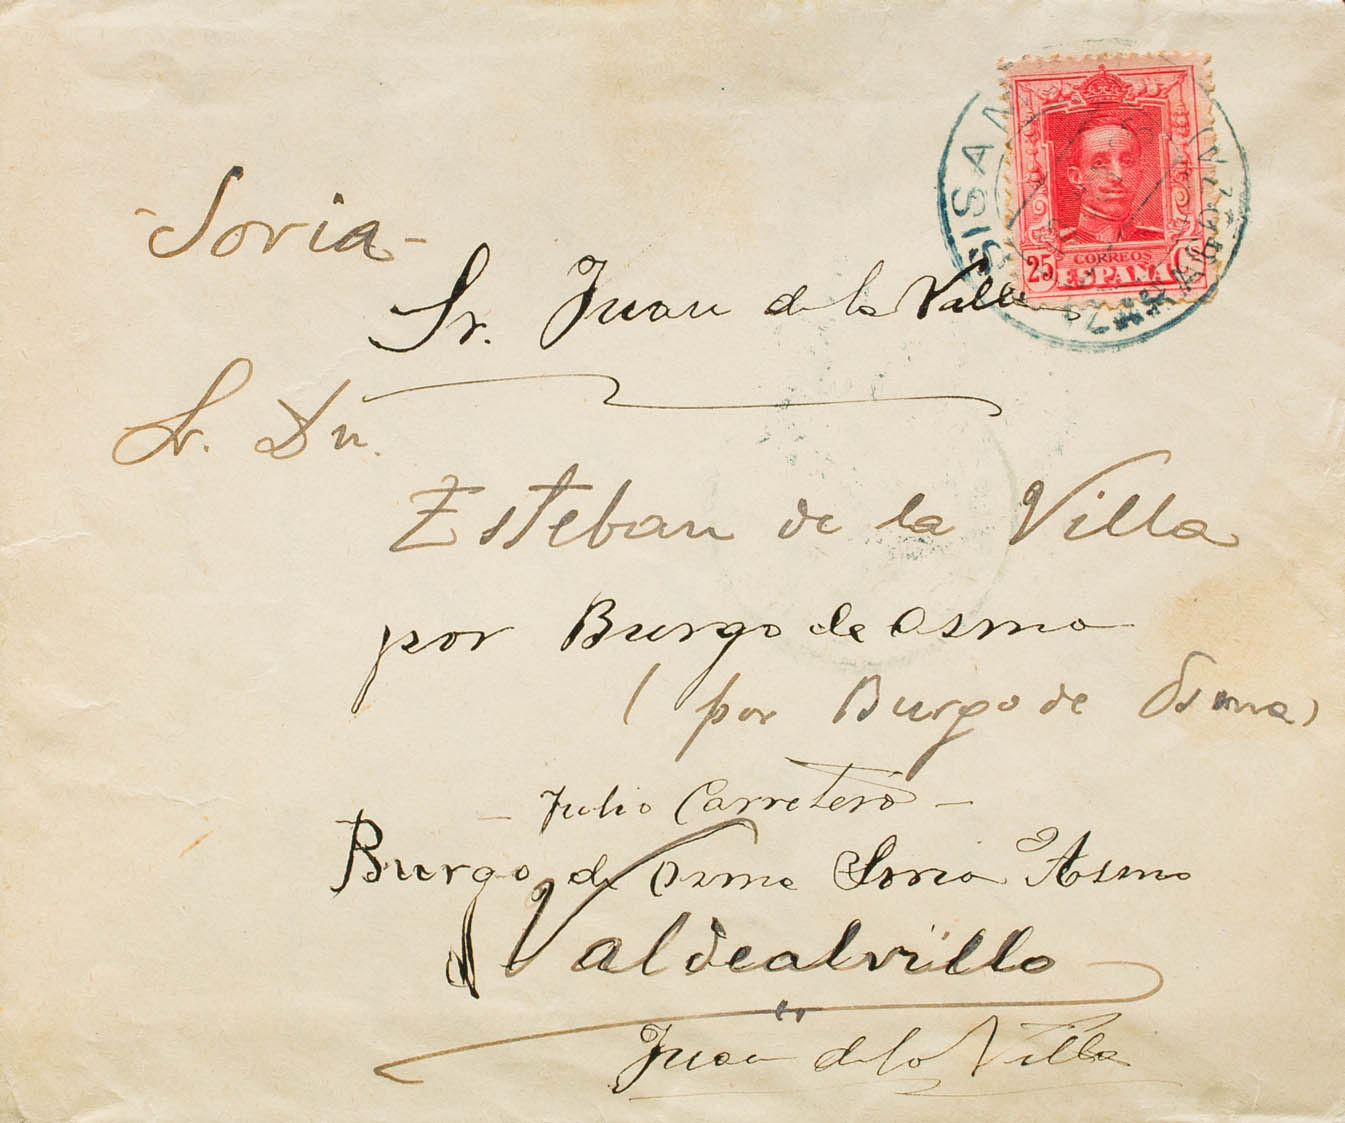 SISAN
25 CORREOS
ESPAÑA
- Soria -
Sr. Juan de la Valle
Sr. Dn.
Esteban de la Villa
por Burgo de Osma
( por Burgo de Osma )
- Julio Carretero -
Burgo de Osma Soria Aosma
Valdealvillo
Juan de la Villa